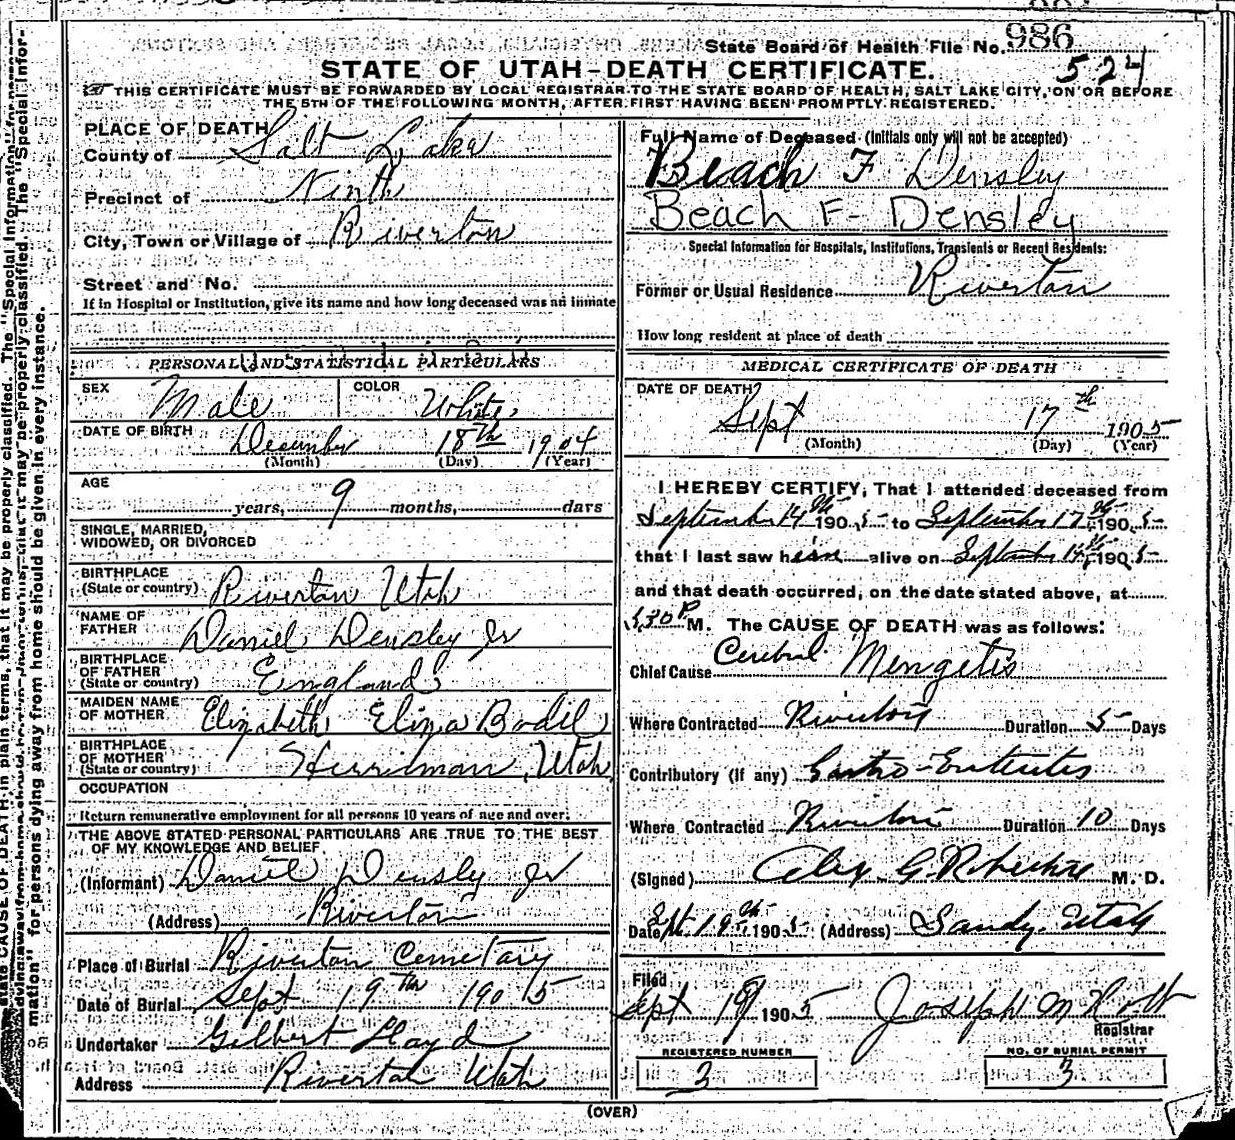 State Board of Health File No. 986
524
STATE OF UTAH-DEATH CERTIFICATE.
THIS CERTIFICATE MUST BE FORWARDED BY LOCAL REGISTRAR TO THE STATE BOARD OF HEALTH, SALT LAKE CITY, ON OR BEFORE
THE 5TH OF THE FOLLOWING MONTH, AFTER FIRST HAVING BEEN PROMPTLY REGISTERED.
PLACE OF DEATH
County of Salt Lake
Precinct of Ninth
City, Town or Village of Riverton
Street and No.
If in Hospital or Institution, give its name and how long deceased was an inmate
PERSONAL AND STATISTICAL PARTICULARS
SEX Male COLOR White
DATE OF BIRTH December 18th 1904
(Month) (Day) (Year)
AGE
years, 9 months, days
SINGLE, MARRIED,
WIDOWED, OR DIVORCED
BIRTHPLACE
(State or country) Riverton Utah
NAME OF
FATHER Daniel Densley Jr
BIRTHPLACE
OF FATHER
(State or country) England
MAIDEN NAME
OF MOTHER Elizabeth Eliza Bodil
BIRTHPLACE
OF MOTHER
(State or country) Herriman, Utah
OCCUPATION
Return remunerative employment for all persons 10 years of age and over.
THE ABOVE STATED PERSONAL PARTICULARS ARE TRUE TO THE BEST
OF MY KNOWLEDGE AND BELIEF
(Informant) Daniel Densley Jr
(Address) Riverton
Place of Burial Riverton Cemetary
Date of Burial Sept 19th 1905
Undertaker Gilbert Lloyd
Address Riverton Utah
Full Name of Deceased (Initials only will not be accepted)
Beach F Densley
Beach F- Densley
Special Information for Hospitals, Institutions, Transients or Recent Residents:
Former or Usual Residence Riverton
How long resident at place of death
MEDICAL CERTIFICATE OF DEATH
DATE OF DEATH
Sept 17th 1905
(Month) (Day) (Year)
I HEREBY CERTIFY, That I attended deceased from
September 14th 1905 to September 17th 1905
that I last saw him alive on September 14th 1905
and that death occurred, on the date stated above, at
5,30 P M. The CAUSE OF DEATH was as follows:
Chief Cause Cerebral Mengetis
Where Contracted Riverton Duration 5 Days
Contributory (If any) Gastro-Enteritis
Where Contracted Riverton Duration 10 Days
(Signed) Alex G. M. D.
Date Sept 19th 1905 (Address) Sandy. Utah
Filed
Sept 19 1905 Joseph M Holt
Registrar
REGISTERED NUMBER
3
NO. OF BURIAL PERMIT
3
(OVER)
state CAUSE OF DEATH in plain terms, that it may be properly classified. The "Special Information" for persons
mation" for persons dying away from home should be given in every instance.